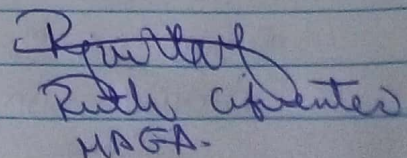 Ruth Cifuentes
MAGA.